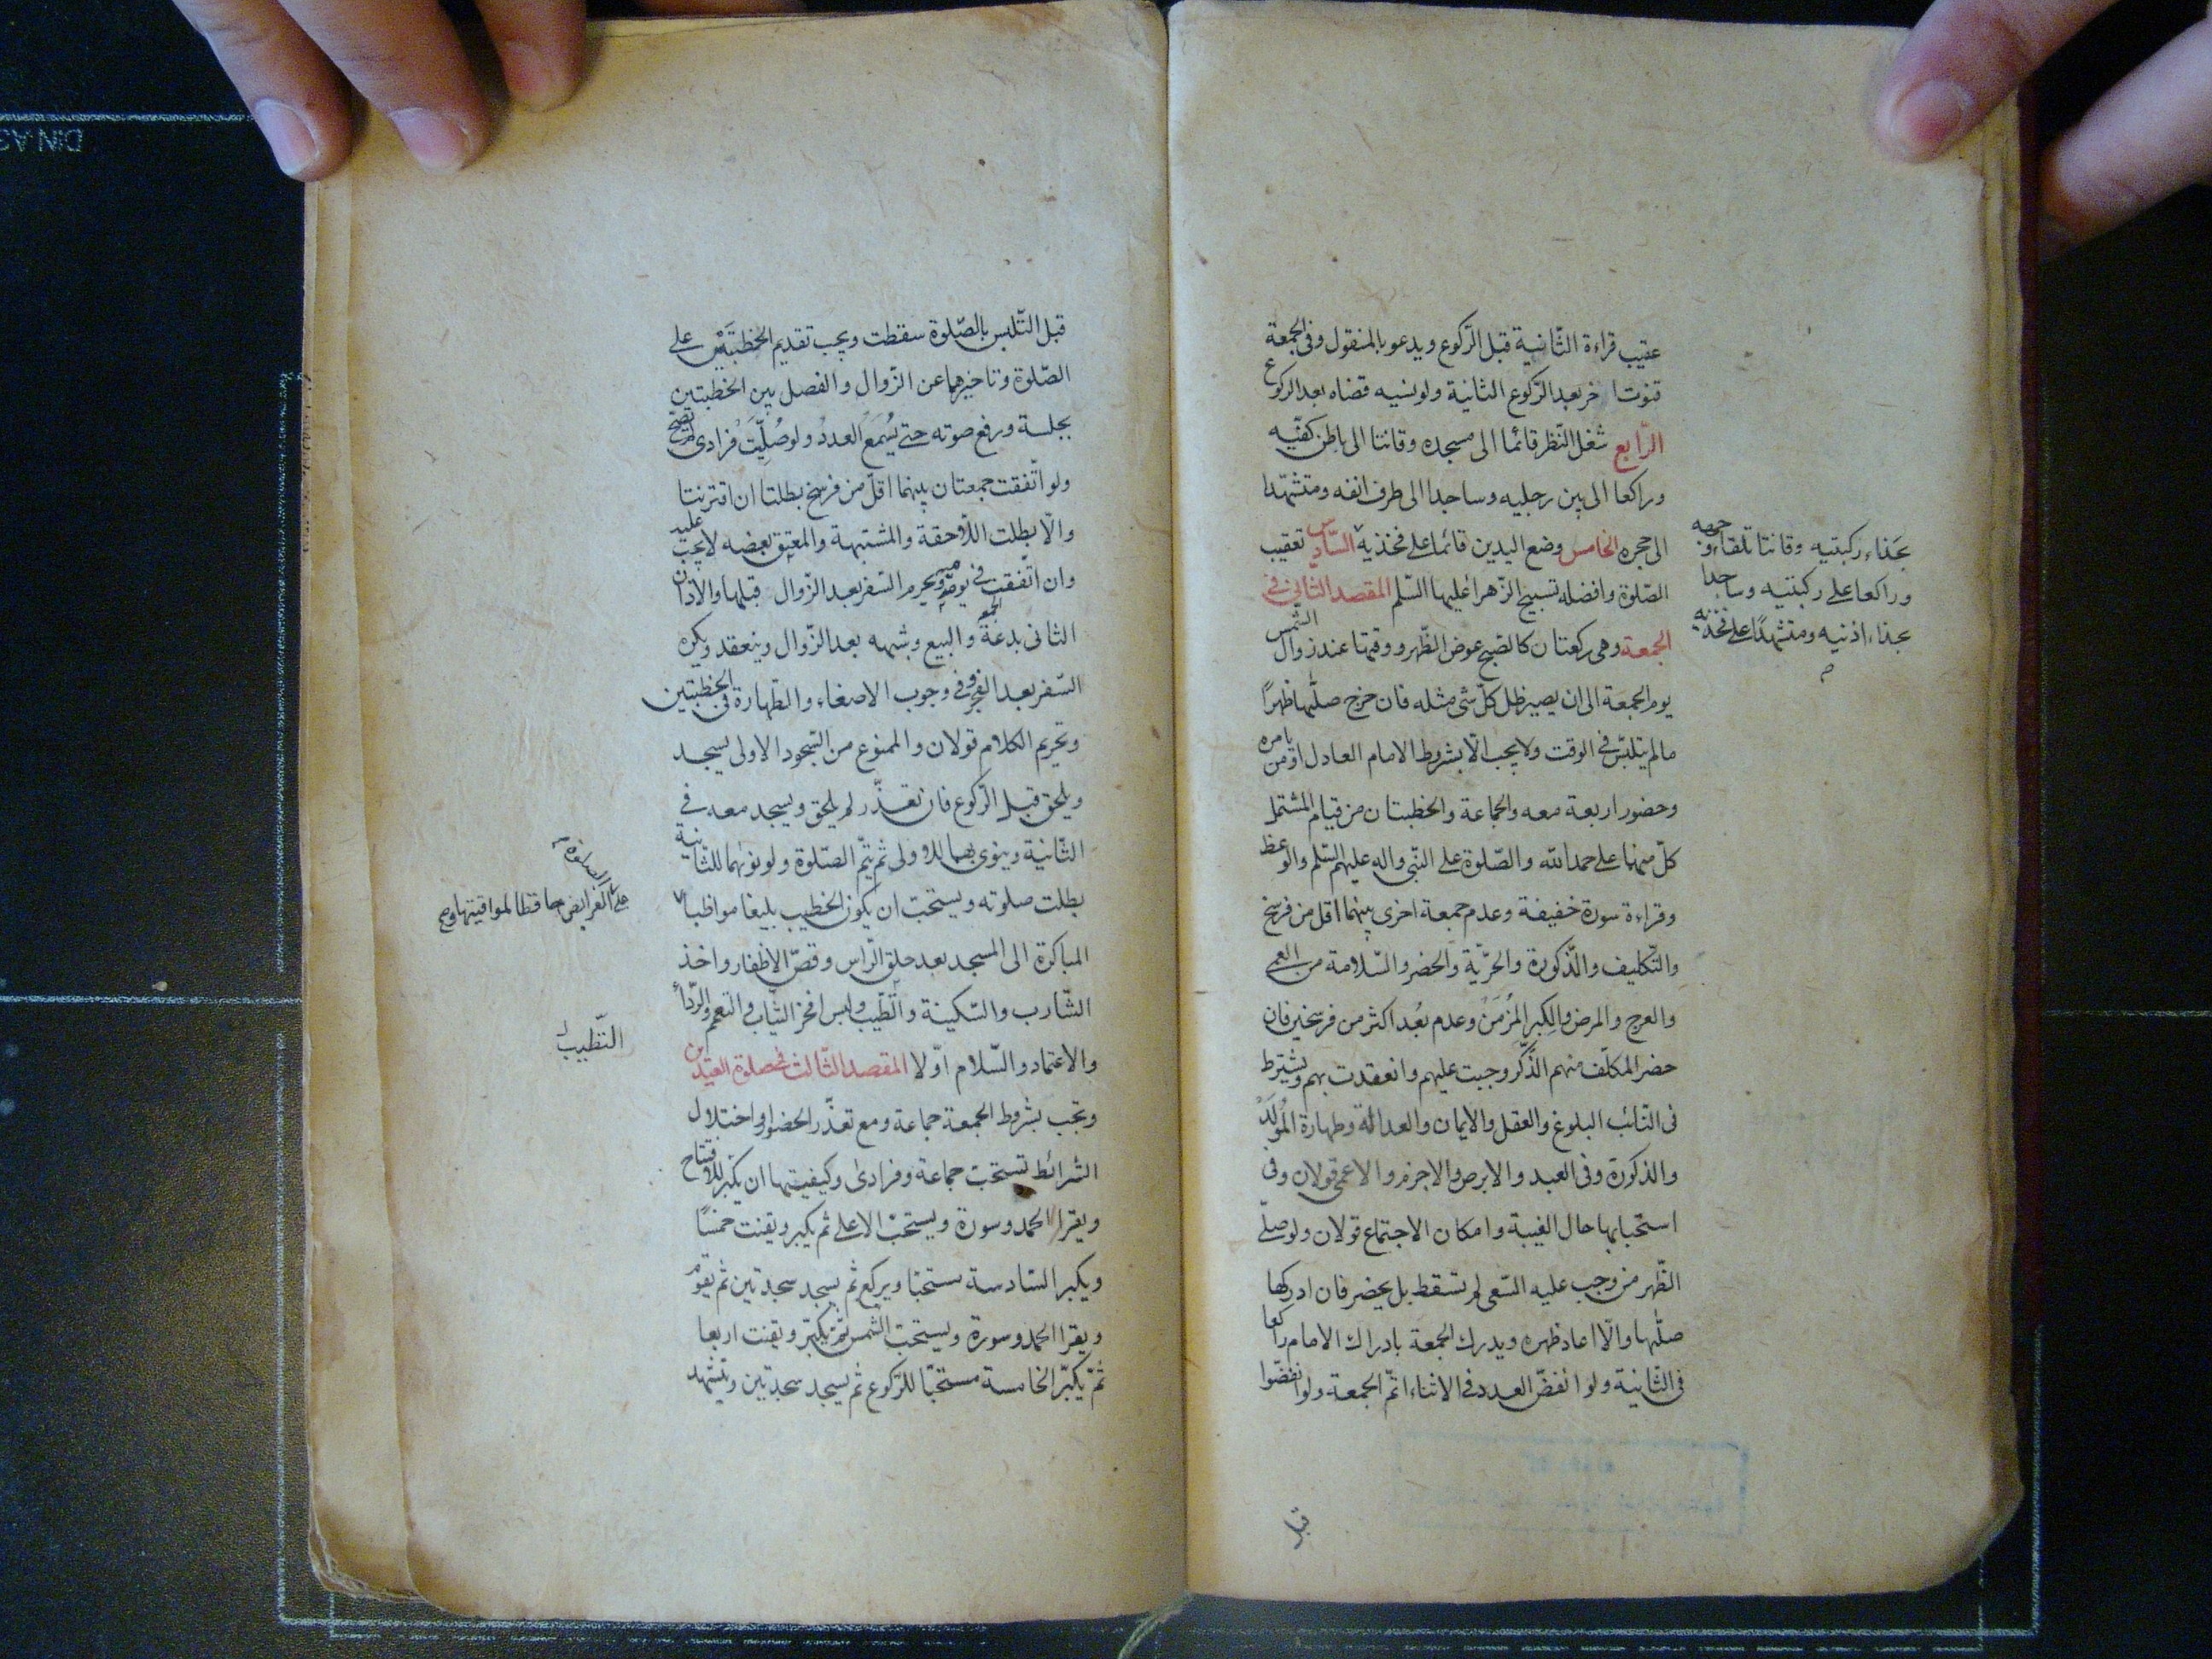 عقيب قراءة الثّانية قبل الرّكوع ويدعو بالمنقول وفى الجمعة
قنوت اخر بعد الرّكوع الثانية ولو نسيه قضاه بعد الركوع
الرّابع شغل النّظر قائما الى مسجده وقانتا الى باطن كفّيه
وراكعا الى بين رجليه وساجدا الى طرف انفه ومتشهّدا
الى حجره الخامس وضع اليدين قائما على فخذيه السّادس تعقيب
الصّلوة وافضله تسبيح الزّهراء عليها السّلم المقصد الثّانى فى
الجمعة وهى ركعتان كالصّبح عوض الظّهر ووقتها عند زوال الشّمس
يوم الجمعة الى ان يصير ظل كلّ شئ مثله فان خرج صلّيها ظهرًا
ما لم يتلبّس فى الوقت ولا يجب الّا بشروط الامام العادل او من يامره
وحضور اربعة معه والجماعة والخطبتان من قيام المشتمل
كلّ منهما على حمد الله والصّلوة على النّبى واله عليهم السّلم والوعظ
وقراءة سورة خفيفة وعدم جمعة اخرى بينهما اقل من فرسخ
والتّكليف والذّكورة والحرّية والحضر والسّلامة من العمى
والعرج والمرض والكبر المُزمَنْ وعدم بُعد اكثر من فرسخين فان
حضر المكلّف منهم الذّكر وجبت عليهم وانعقدت بهم ويشترط
فى النّائب البلوغ والعقل والايمان والعدالة وطهارة المُولَدْ
والذكورة وفى العبد والابرص والاجزم والاعمى قولان وفى
استحبابها حال الغيبة وامكان الاجتماع قولان ولو صلّى
الظّهر من وجب عليه السّعى لم تسقط بل يحضر فان ادركها
صلّيها والّا اعاد ظهره ويدرك الجمعة بادراك الامام راكعا
فى الثّانية ولو انفضّ العدد فى الاثناء اتمّ الجمعة ولو انفضّوا
قبل
بحَذاء ركبتيه وقانتا تلقاء وجهه
وراكعا على ركبتيه وساجدا
بحذاء اذنيه ومتشهدًا على فخذيه
قبل التّلبس بالصّلوة سقطت ويجب تقديم الخطبتَيْن على
الصّلوة وتاخيرهما عن الزّوال والفصل بين الخطبتين
بجلسة ورفع صوته حتى يُسْمَعَ العددُ ولو صُلِّيَتْ فرادى لم تصحّ
ولو اتّفقت جمعتان بينهما اقلّ من فرسخ بطلتا ان اقترنتا
والّا بطلت اللّاحقة والمشتبهة والمعتق بعضه لا يجب عليه
وان اتّفقت فى يومه ويحرم السّفر بعد الزّوال قبلها والاذان
الثانى بدعة والبيع وشبهه بعد الزّوال وينعقد ويكره
السّفر بعد الفجر وفى وجوب الاصغاء والطّهارة فى الخطبتين
وتحريم الكلام قولان والممنوع من السّجود الاولى يسجد
ويلحق قبل الرّكوع فان تعذّر لم يلحق ويسجد معه فى
الثّانية وينوى بهما للاولى ثم يتمّ الصّلوة ولو نوٰهما للثّانية
بطلت صلوته ويستحبّ ان يكون الخطيب بليغا مواظبا
المباكرة الى المسجد بعد حلق الرّاس وقصّ الاظفار واخذ
الشّارب والسّكينة والتّطيّب ولبس افخر الثّياب والتعمم والرّداء
والاعتماد والسّلام اوّلا المقصد الثّالث فى صلوة العيدين
وتجب بشروط الجمعة جماعة ومع تعذّر الحضور او اختلال
الشّرائط تستحبّ جماعة وفرادى وكيفيتها ان يكبّر للافتتاح
ويقرا الحمد وسورة ويستحبّ الاعلى ثم يكبر ويقنت خمسًا
ويكبر السّادسة مستحبّا ويركع ثم يسجد سجدتين ثم يقوم
ويقرا الحمد وسورة ويستحبّ الشّمس ثمّ يكبّر ويقنت اربعا
ثمّ يكبّر الخامسة مستحبّا للرّكوع ثم يسجد سجدتين ويتشهد
على الفرايض حافظا لمواقيتها و
التّطيب